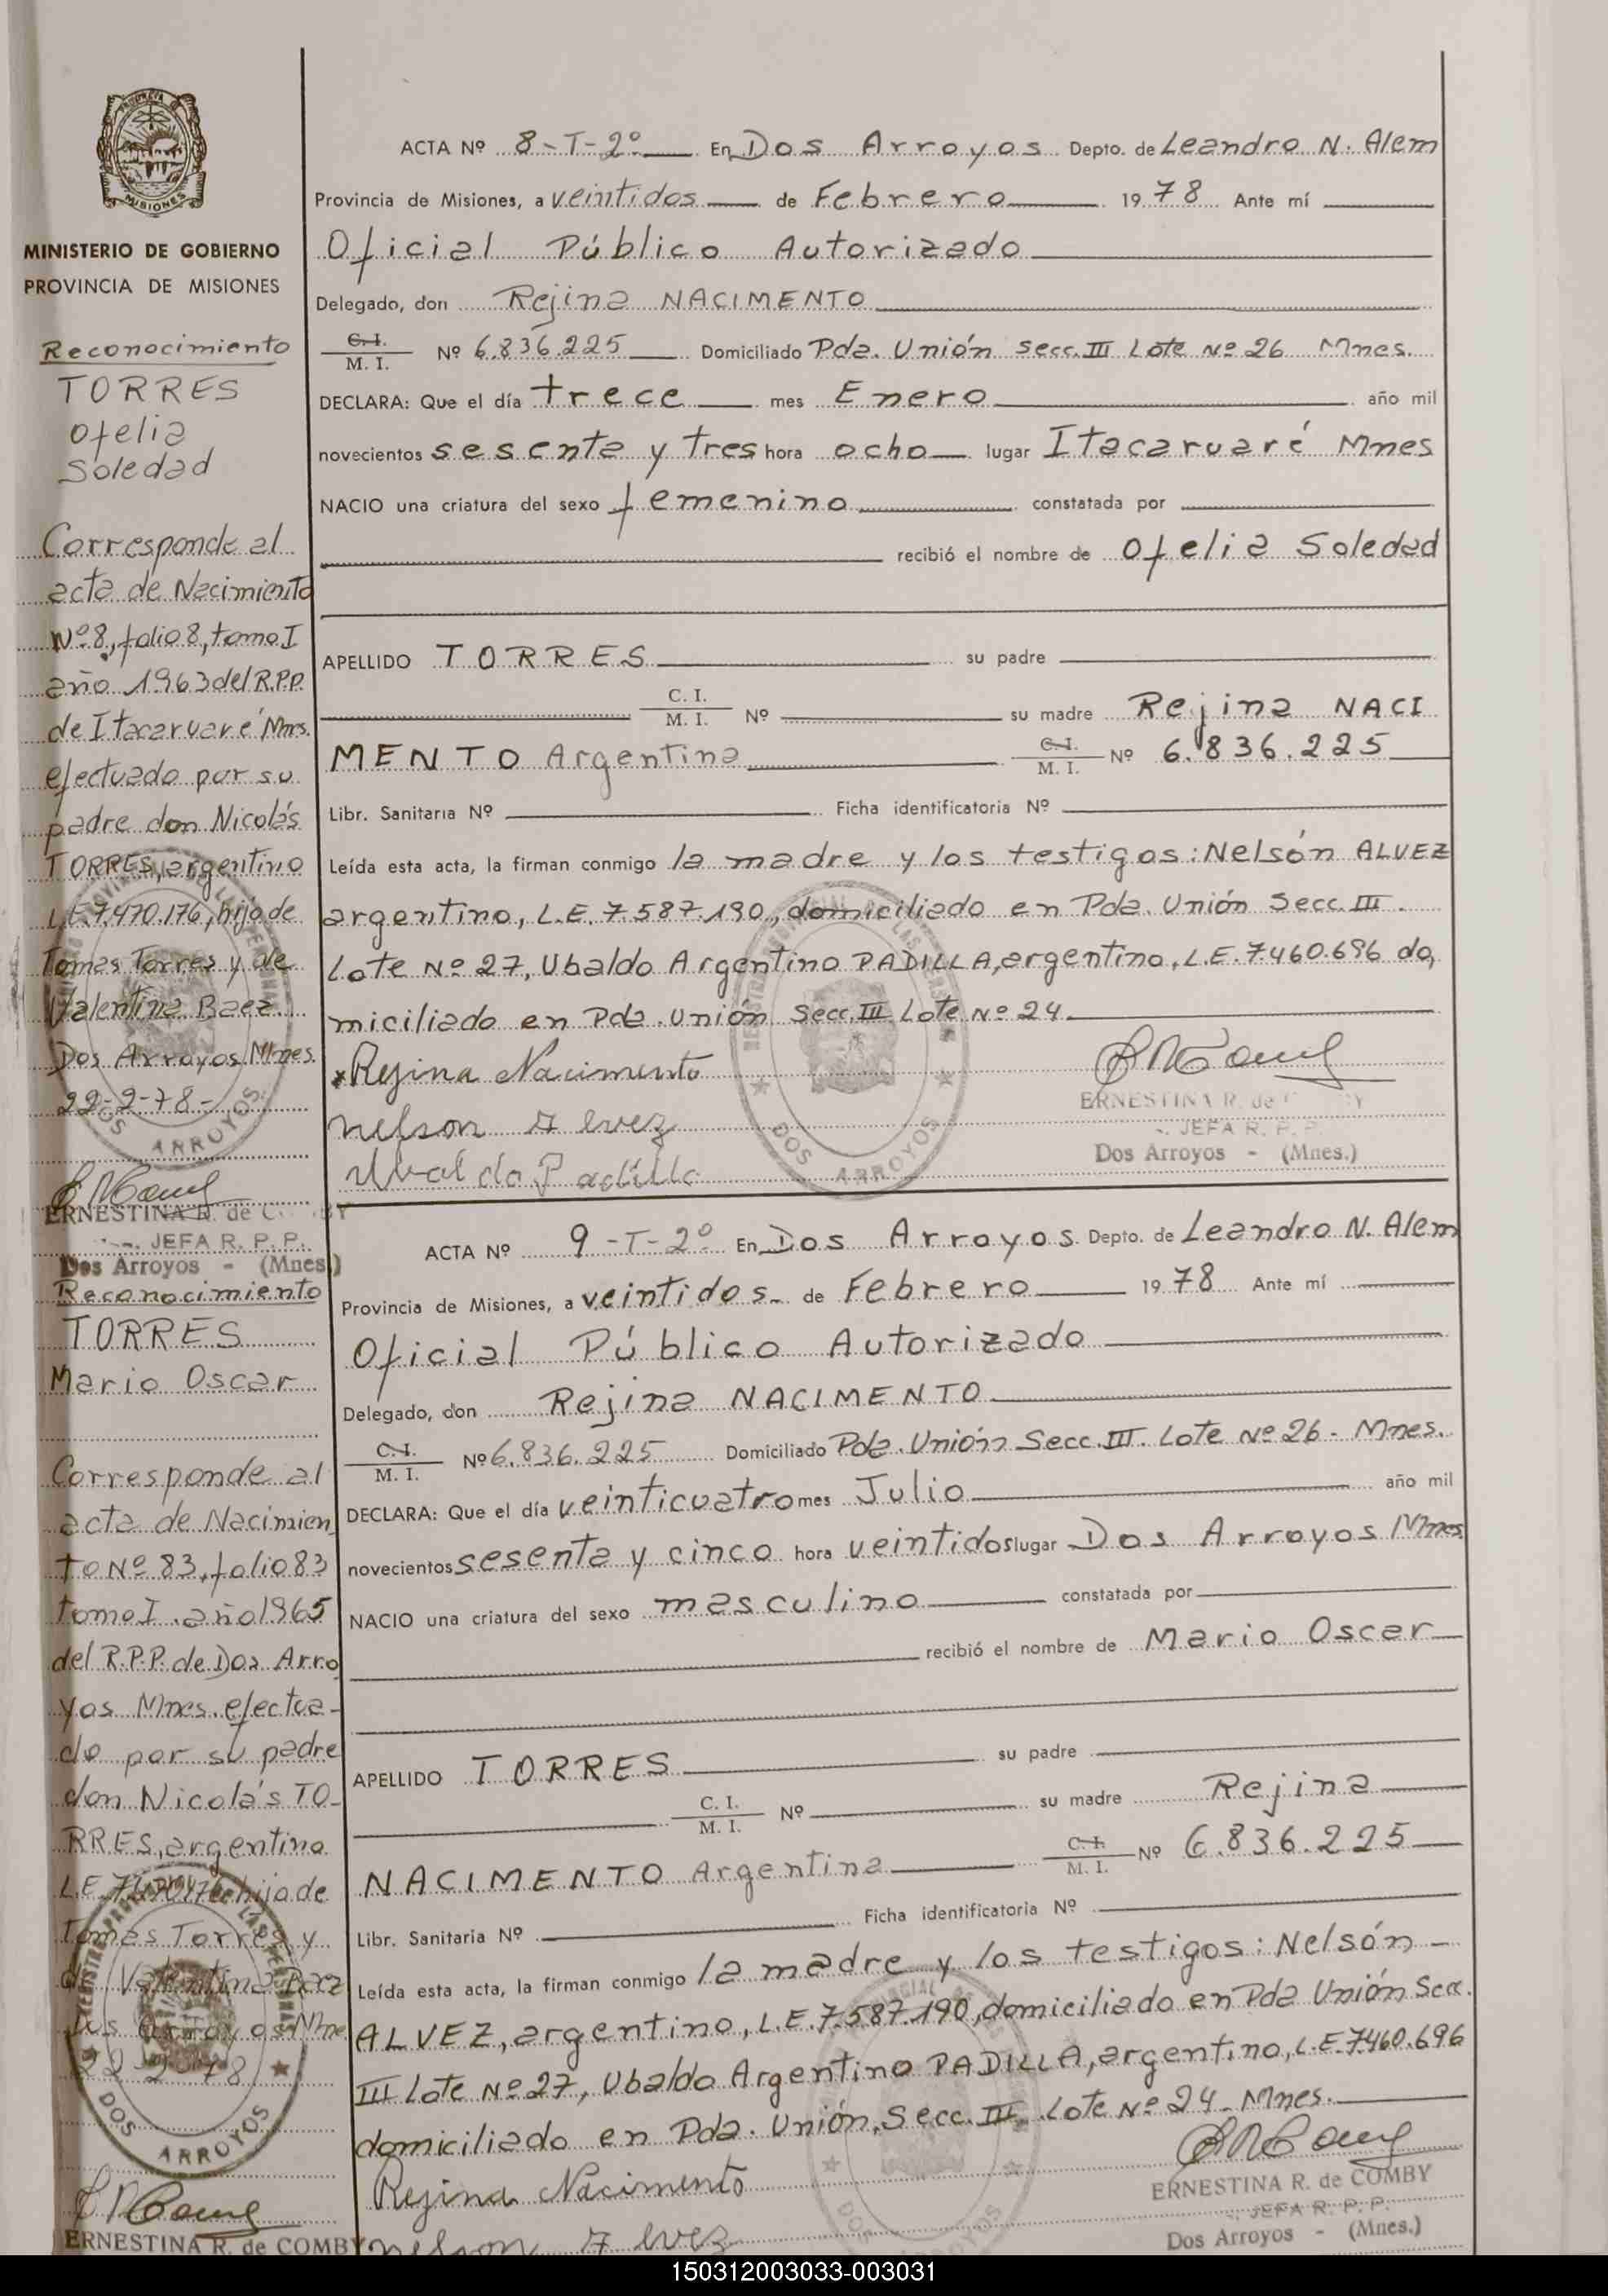 MINISTERIO DE GOBIERNO
PROVINCIA DE MISIONES
Reconocimiento
TORRES
Ofelia
Soledad
Corresponde al
acta de Nacimiento
Nº 8, folio 8, tomo I
año 1963 del R.P.P.
de Itacaruaré Mnes.
efectuado por su
padre don Nicolás
TORRES, argentino
L.E. 7.470.176, hijo de
Tomas Torres y de
Valentina Baez.
Dos Arroyos Mnes.
22-2-78-
DOS ARROYOS
ERNESTINA R. de
JEFA R. P. P.
Dos Arroyos - (Mnes.)
ACTA Nº 8-T-2º En Dos Arroyos Depto. de Leandro N. Alem
Provincia de Misiones, a veintidos de Febrero 1978 Ante mí
Oficial Público Autorizado
Delegado, don Rejina NACIMENTO
C.I. / M.I. Nº 6.836.225 Domiciliado Pda. Unión Secc. III Lote Nº 26 Mnes.
DECLARA: Que el día trece mes Enero año mil
novecientos sesenta y tres hora ocho lugar Itacaruaré Mnes
NACIO una criatura del sexo femenino constatada por
recibió el nombre de Ofelia Soledad
APELLIDO TORRES su padre
C. I. / M. I. Nº su madre Rejina NACI
MENTO Argentina C.I. / M. I. Nº 6.836.225
Libr. Sanitaria Nº Ficha identificatoria Nº
Leída esta acta, la firman conmigo la madre y los testigos: Nelsón ALVEZ
argentino, L.E. 7.587.190, domiciliado en Pda. Unión Secc. III.
Lote Nº 27, Ubaldo Argentino PADILLA, argentino, L.E. 7.460.696 do,
miciliado en Pda. Unión Secc. III Lote Nº 24
Rejina Nacimento
nelson Alvez
Uvaldo Padilla
DOS ARROYOS
ERNESTINA R. de
JEFA R. P. P.
Dos Arroyos - (Mnes.)
Reconocimiento
TORRES
Mario Oscar
Corresponde al
acta de Nacimien
to Nº 83, folio 83
tomo I. año 1965
del R.P.P. de Dos Arro
yos Mnes. efectua-
do por su padre
don Nicolás TO-
RRES, argentino
L.E. hijo de
Tomas Torres y
de Valentina Baez
Dos Arroyos Mne
22 2 78
DOS ARROYOS
ERNESTINA R. de COMBY
ACTA Nº 9-T-2º En Dos Arroyos Depto. de Leandro N. Alem
Provincia de Misiones, a veintidos de Febrero 1978 Ante mí
Oficial Público Autorizado
Delegado, don Rejina NACIMENTO
C.I. / M. I. Nº 6.836.225 Domiciliado Pda. Unión Secc. III. Lote Nº 26- Mnes.
DECLARA: Que el día veinticuatro mes Julio año mil
novecientos sesenta y cinco hora veintidos lugar Dos Arroyos Mnes
NACIO una criatura del sexo masculino constatada por
recibió el nombre de Mario Oscar
APELLIDO TORRES su padre
C. I. / M. I. Nº su madre Rejina
NACIMENTO Argentina C.I. / M. I. Nº 6.836.225
Libr. Sanitaria Nº Ficha identificatoria Nº
Leída esta acta, la firman conmigo la madre y los testigos: Nelsón -
ALVEZ, argentino, L.E. 7.587.190, domiciliado en Pda Unión Secc.
III Lote Nº 27, Ubaldo Argentino PADILLA, argentino, L.E. 7.460.696
domiciliado en Pda. Unión, Secc. III, Lote Nº 24- Mnes.
Rejina Nacimento
nelson Alvez
ERNESTINA R. de COMBY
JEFA R. P. P.
Dos Arroyos - (Mnes.)
150312003033-003031